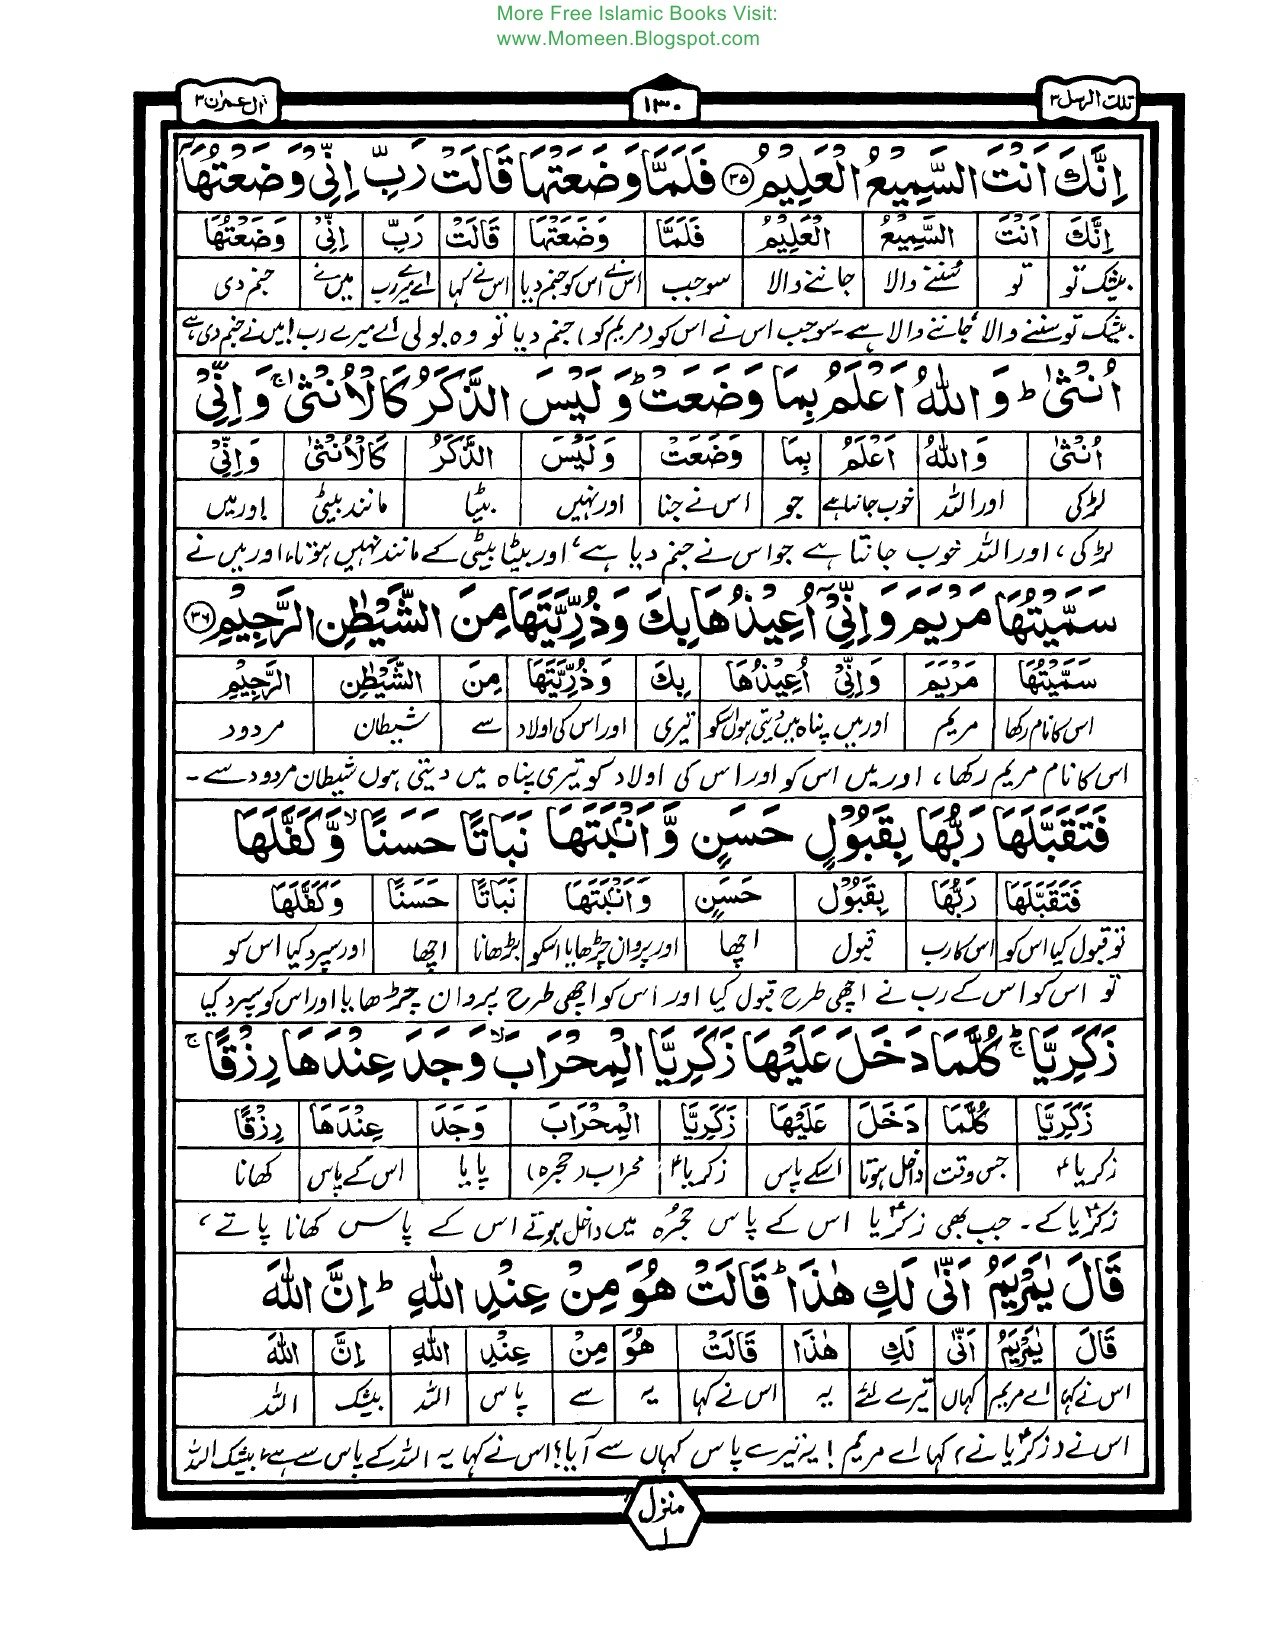 More Free Islamic Books Visit:
www.Momeen.Blogspot.com
تلك الرسل ٣
١٣٠
اٰل عمران ٣
اِنَّكَ اَنْتَ السَّمِيْعُ الْعَلِيْمُ ۝٣٥ فَلَمَّا وَضَعَتْهَا قَالَتْ رَبِّ اِنِّيْ وَضَعْتُهَاۤ
اِنَّكَ اَنْتَ السَّمِيْعُ الْعَلِيْمُ فَلَمَّا وَضَعَتْهَا قَالَتْ رَبِّ اِنِّيْ وَضَعْتُهَا
بیشک تو تو سننے والا جاننے والا سو جب اس نے اس کو جنم دیا اس نے کہا اے میرے رب میں نے جنم دی
بیشک تو سننے والا جاننے والا ہے۔ سو جب اس نے اس کو (مریم کو) جنم دیا تو وہ بولی اے میرے رب! میں نے جنم دی ہے
اُنْثٰى ؕ وَاللّٰهُ اَعْلَمُ بِمَا وَضَعَتْ ؕ وَلَيْسَ الذَّكَرُ كَالْاُنْثٰى ۚ وَاِنِّيْ
اُنْثٰى وَاللّٰهُ اَعْلَمُ بِمَا وَضَعَتْ وَلَيْسَ الذَّكَرُ كَالْاُنْثٰى وَاِنِّيْ
لڑکی اور اللہ خوب جانتا ہے جو اس نے جنا اور نہیں بیٹا مانند بیٹی اور میں
لڑکی، اور اللہ خوب جانتا ہے جو اس نے جنم دیا ہے، اور بیٹا بیٹی کے مانند نہیں ہوتا، اور میں نے
سَمَّيْتُهَا مَرْيَمَ وَاِنِّيْۤ اُعِيْذُهَا بِكَ وَذُرِّيَّتَهَا مِنَ الشَّيْطٰنِ الرَّجِيْمِ ۝٣٦
سَمَّيْتُهَا مَرْيَمَ وَاِنِّيْ اُعِيْذُهَا بِكَ وَذُرِّيَّتَهَا مِنَ الشَّيْطٰنِ الرَّجِيْمِ
اس کا نام رکھا مریم اور میں پناہ میں دیتی ہوں اسکو تیری اور اس کی اولاد سے شیطان مردود
اس کا نام مریم رکھا، اور میں اس کو اور اس کی اولاد کو تیری پناہ میں دیتی ہوں شیطان مردود سے۔
فَتَقَبَّلَهَا رَبُّهَا بِقَبُوْلٍ حَسَنٍ وَّاَنْۢبَتَهَا نَبَاتًا حَسَنًا ۙ وَّكَفَّلَهَا
فَتَقَبَّلَهَا رَبُّهَا بِقَبُوْلٍ حَسَنٍ وَاَنْۢبَتَهَا نَبَاتًا حَسَنًا وَكَفَّلَهَا
تو قبول کیا اس کو اس کا رب قبول اچھا اور پروان چڑھایا اسکو بڑھانا اچھا اور سپرد کیا اس کو
تو اس کو اس کے رب نے اچھی طرح قبول کیا اور اس کو اچھی طرح پروان چڑھایا اور اس کو سپرد کیا
زَكَرِيَّا ۚؕ كُلَّمَا دَخَلَ عَلَيْهَا زَكَرِيَّا الْمِحْرَابَ ۙ وَجَدَ عِنْدَهَا رِزْقًا ۚ
زَكَرِيَّا كُلَّمَا دَخَلَ عَلَيْهَا زَكَرِيَّا الْمِحْرَابَ وَجَدَ عِنْدَهَا رِزْقًا
زکریاؑ جس وقت داخل ہوتا اسکے پاس زکریاؑ محراب (حجرہ) پایا اس کے پاس کھانا
زکریاؑ کے۔ جب بھی زکریاؑ اس کے پاس حجرہ میں داخل ہوتے اس کے پاس کھانا پاتے،
قَالَ يٰمَرْيَمُ اَنّٰى لَكِ هٰذَا ؕ قَالَتْ هُوَ مِنْ عِنْدِ اللّٰهِ ؕ اِنَّ اللّٰهَ
قَالَ يٰمَرْيَمُ اَنّٰى لَكِ هٰذَا قَالَتْ هُوَ مِنْ عِنْدِ اللّٰهِ اِنَّ اللّٰهَ
اس نے کہا اے مریم کہاں تیرے لئے یہ اس نے کہا یہ سے پاس اللہ بیشک اللہ
اس نے (زکریاؑ نے) کہا اے مریم! یہ تیرے پاس کہاں سے آیا؟ اس نے کہا یہ اللہ کے پاس سے ہے، بیشک اللہ
منزل ١